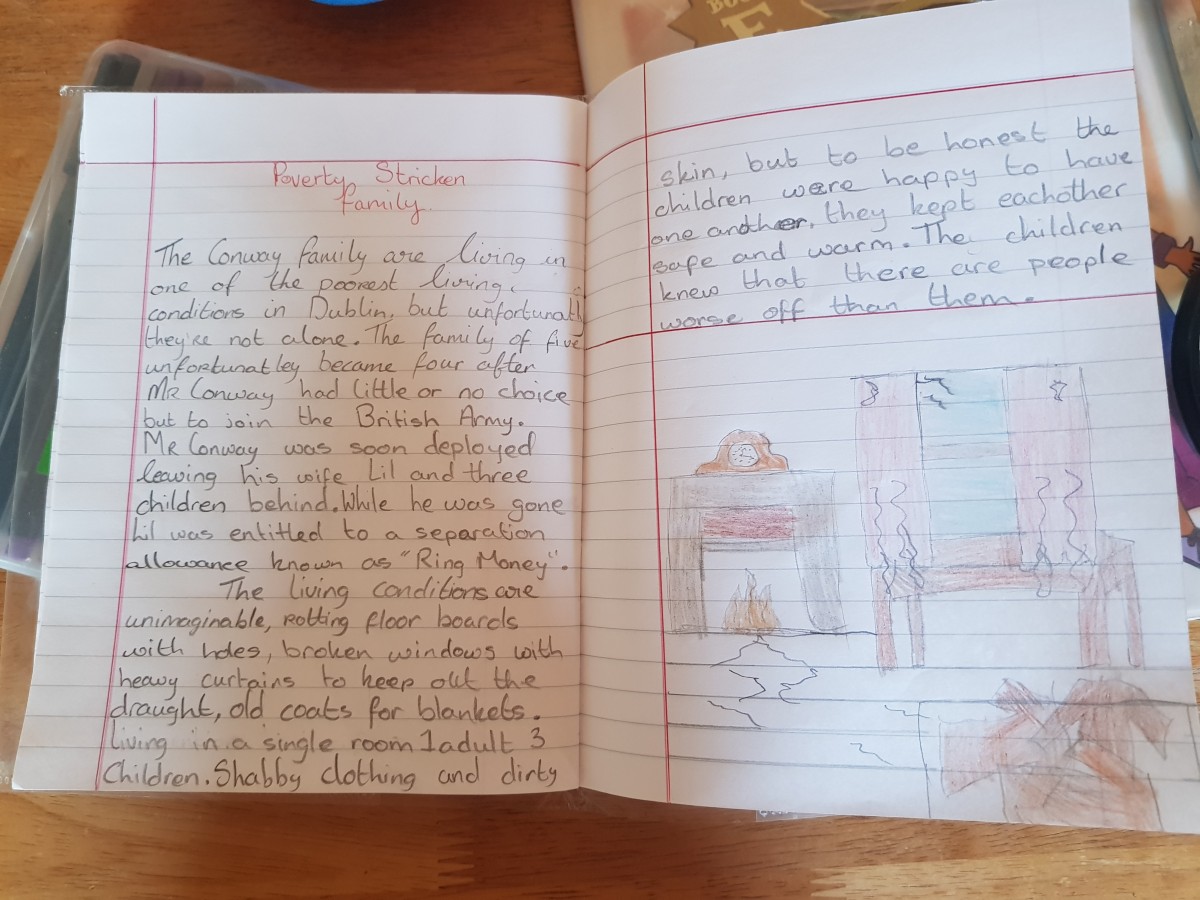 Poverty Stricken
Family.
The Conway family are living in
one of the poorest living
conditions in Dublin, but unfortunatl
they're not alone. The family of five
unfortunatley became four after
MR Conway had little or no choice
but to join the British Army.
MR Conway was soon deployed
leaving his wife Lil and three
children behind. While he was gone
Lil was entitled to a separation
allowance known as "Ring Money".
The living conditions are
unimaginable, rotting floor boards
with holes, broken windows with
heavy curtains to keep out the
draught, old coats for blankets.
living in a single room 1 adult 3
Children. Shabby clothing and dirty
skin, but to be honest the
children were happy to have
one another, they kept eachother
safe and warm. The children
knew that there are people
worse off than them.
BOO